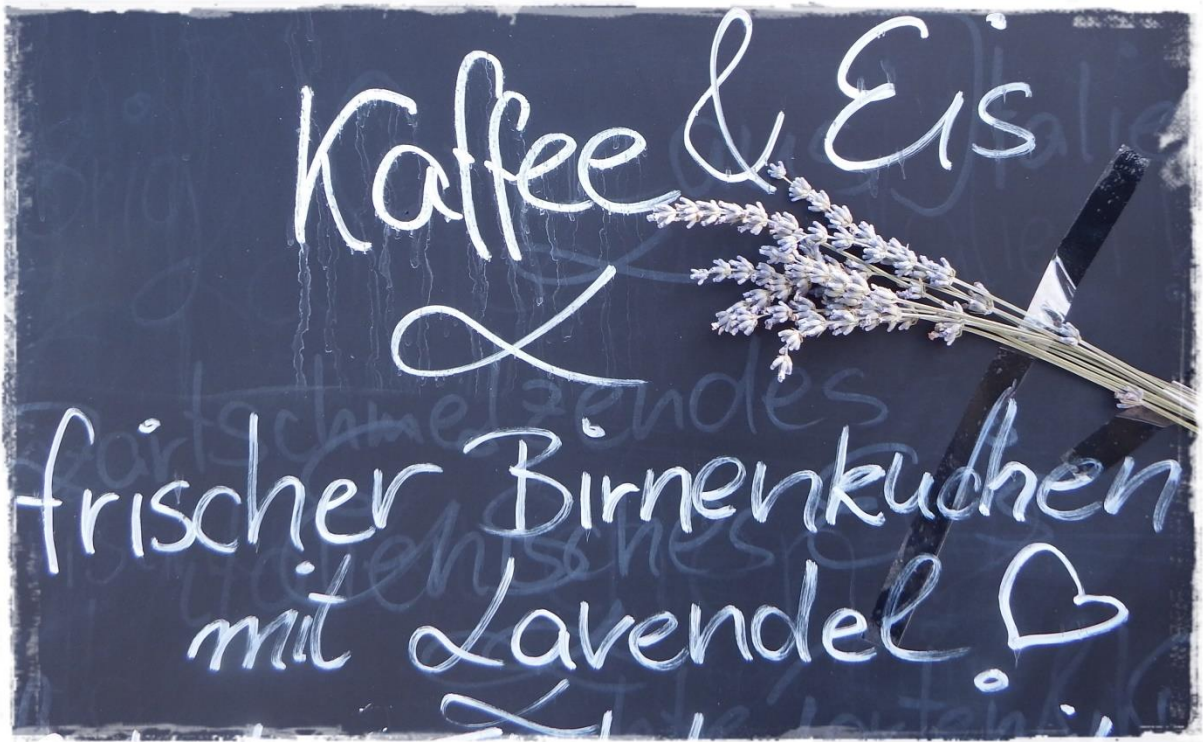 Kaffee & Eis
frischer Birnenkuchen
mit Lavendel